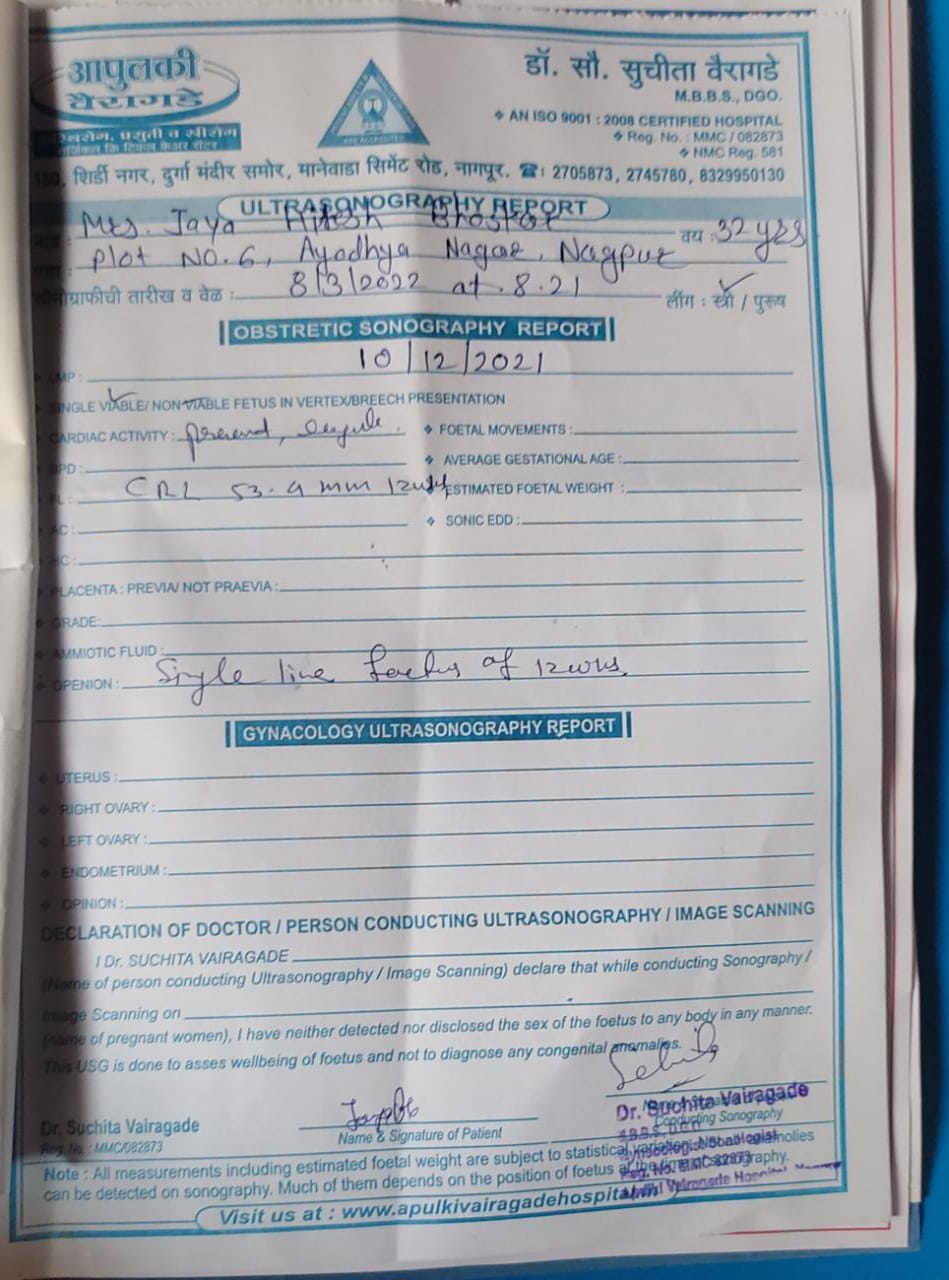 आपुलकी
वैरागडे
डॉ. सौ. सुचीता वैरागडे
M.B.B.S., DGO.
❖ AN ISO 9001 : 2008 CERTIFIED HOSPITAL
❖ Reg. No. : MMC / 082873
❖ NMC Reg. 581
शिर्डी नगर, दुर्गा मंदीर समोर, मानेवाडा सिमेंट रोड, नागपूर. ☎: 2705873, 2745780, 8329950130
ULTRASONOGRAPHY REPORT
Mrs. Jaya Hitesh Bhoskar वय : 32 yrs
Plot NO. 6, Ayodhya Nagar, Nagpur
सोनोग्राफीची तारीख व वेळ : 8/3/2022 at. 8.21 लींग : स्त्री / पुरूष
OBSTRETIC SONOGRAPHY REPORT
LMP : 10/12/2021
SINGLE VIABLE/ NON VIABLE FETUS IN VERTEX/BREECH PRESENTATION
CARDIAC ACTIVITY : present, regular. ❖ FOETAL MOVEMENTS :
BPD : ❖ AVERAGE GESTATIONAL AGE :
FL : CRL 53.9 mm ESTIMATED FOETAL WEIGHT :
AC : ❖ SONIC EDD :
HC :
PLACENTA : PREVIA/ NOT PRAEVIA :
GRADE:
AMMIOTIC FLUID :
OPENION : Single live foetus of 12 wks.
GYNACOLOGY ULTRASONOGRAPHY REPORT
UTERUS :
RIGHT OVARY :
LEFT OVARY :
ENDOMETRIUM :
OPINION :
DECLARATION OF DOCTOR / PERSON CONDUCTING ULTRASONOGRAPHY / IMAGE SCANNING
I Dr. SUCHITA VAIRAGADE
(Name of person conducting Ultrasonography / Image Scanning) declare that while conducting Sonography /
Image Scanning on
(name of pregnant women), I have neither detected nor disclosed the sex of the foetus to any body in any manner.
This USG is done to asses wellbeing of foetus and not to diagnose any congenital anomalies.
Dr. Suchita Vairagade
Reg. No. : MMC/082873
Name & Signature of Patient
Dr. Suchita Vairagade
Conducting Sonography
Note : All measurements including estimated foetal weight are subject to statistical variation.
can be detected on sonography. Much of them depends on the position of foetus sonography.
Visit us at : www.apulkivairagadehospital